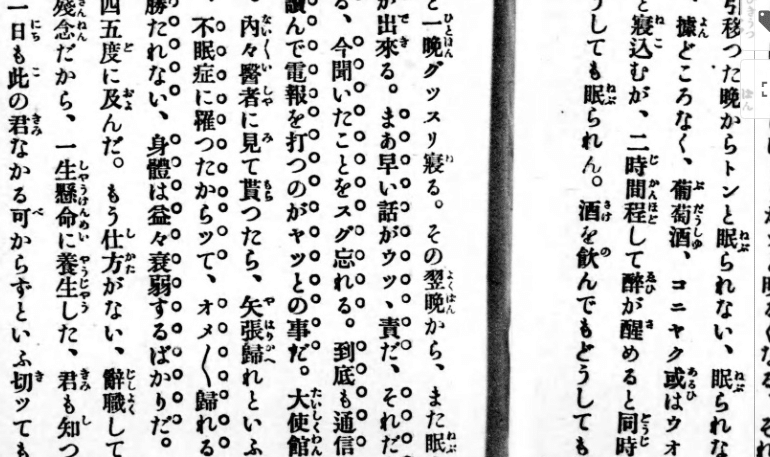 引移つた晩からトンと眠られない、眠られな
、據どころなく、葡萄酒、コニヤク或はウオ
と寢込むが、二時間程して醉が醒めると同時
うしても眠られん。酒を飲んでもどうしても
と一晩グツスリ寢る。その翌晩から、また眠
が出來る。まあ早い話がウツヽ責だ、それだ
る、今聞いたことをスグ忘れる。到底も通信
讀んで電報を打つのがヤツとの事だ。大使館
。内々醫者に見て貰つたら、矢張歸れといふ
不眠症に罹つたからッて、オメ〱歸れる
勝たれない、身體は益々衰弱するばかりだ。
四五度に及んだ。もう仕方がない、辭職して
殘念だから、一生懸命に養生した、君も知つ
一日も此の君なかる可からずといふ切ッても